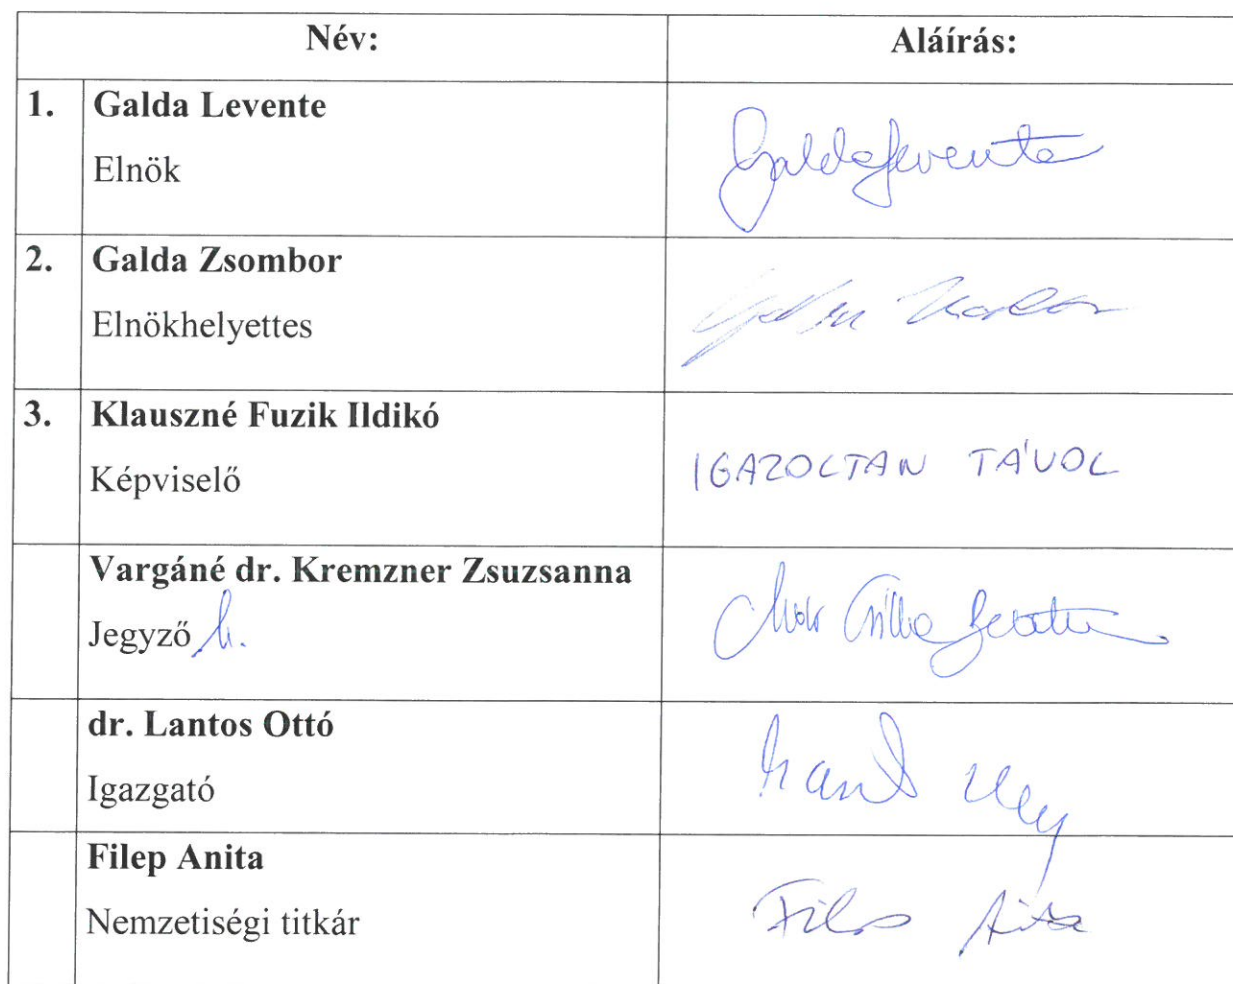 Név: Aláírás:
1. Galda Levente
Elnök
Galda Levente
2. Galda Zsombor
Elnökhelyettes
3. Klauszné Fuzik Ildikó
Képviselő
IGAZOLTAN TÁVOL
Vargáné dr. Kremzner Zsuzsanna
Jegyző h.
dr. Lantos Ottó
Igazgató
Filep Anita
Nemzetiségi titkár
Filep Anita